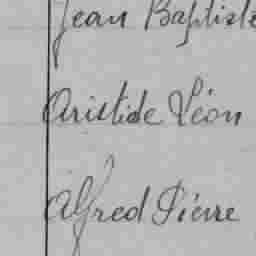 Jean Baptiste
Aristide Léon
Alfred Pierre